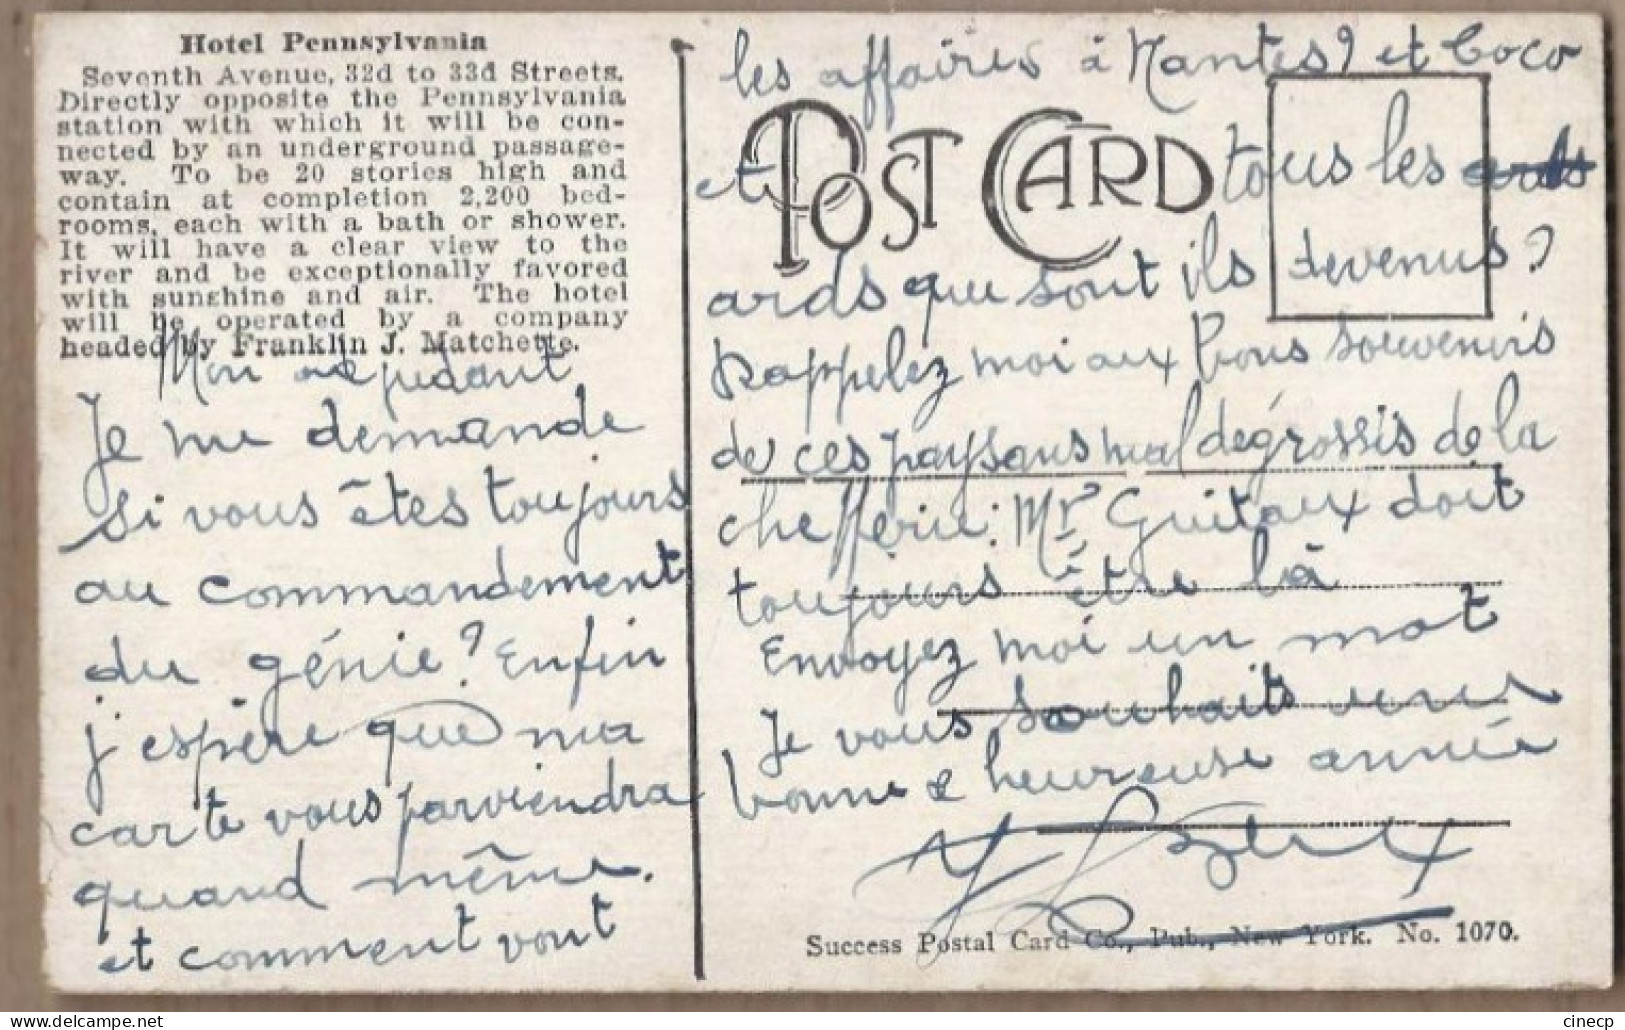 Hotel Pennsylvania
Seventh Avenue, 32d to 33d Streets.
Directly opposite the Pennsylvania
station with which it will be con-
nected by an underground passage-
way. To be 20 stories high and
contain at completion 2,200 bed-
rooms, each with a bath or shower.
It will have a clear view to the
river and be exceptionally favored
with sunshine and air. The hotel
will be operated by a company
headed by Franklin J. Matchette.
Mon adjudant
Je me demande
si vous êtes toujours
au commandement
du génie? Enfin
j'espère que ma
carte vous parviendra
quand même.
et comment vont
les affaires à Nantes? et Coco
POST CARD
et tous les
ards que sont ils devenus?
Rappelez moi aux bons souvenirs
de ces paysans mal dégrossis de la
chefferie: Mr Guitaux doit
toujours être là
Envoyez moi un mot
Je vous souhaits une
bonne & heureuse année
Success Postal Card Co., Pub., New York. No. 1070.
cinecp